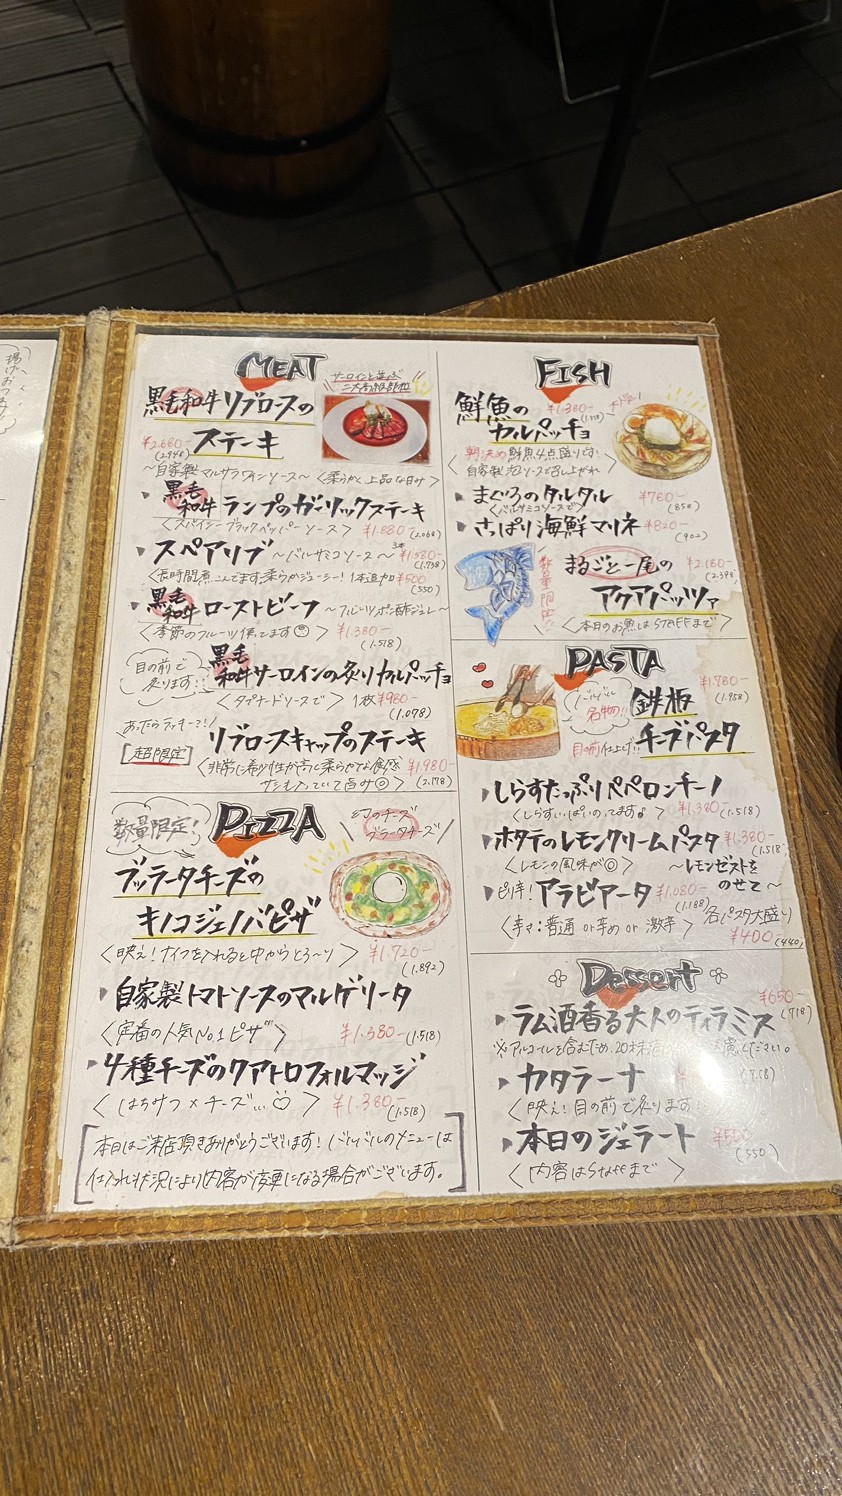 MEAT
サーロインと並ぶ
二大高級部位
黒毛和牛リブロースの
ステーキ
¥2.680-
(2.948)
〜自家製マルサラワインソース〜 〈柔らかく上品な甘み〉
黒毛
和牛 ランプのガーリックステーキ
〈スパイシーブラックペッパーソース〉 ¥1.880-
(2.068)
スペアリブ 〜バルサミコソース〜 3本 ¥1.580-
(1.738)
〈長時間煮こんでます.柔らかジューシー! 1本追加¥500
(550)
黒毛
和牛 ローストビーフ 〜フルーツポン酢ジュレ〜
〈季節のフルーツ使ってます〉 ¥1.380-
(1.518)
目の前で
炙ります!!
黒毛
和牛 サーロインの炙りカルパッチョ
〈タプナードソースで〉 1枚¥980-
(1.078)
あったらラッキー?!
超限定
リブロースキャップのステーキ
〈非常に希少性が高く柔らかな食感
サシも入っていて旨み◎〉
¥1.980-
(2.178)
数量限定!
PIZZA
幻のチーズ
ブラータチーズ
ブッラータチーズの
キノコジェノバピザ
〈映え!ナイフを入れると中からとろ〜り〉 ¥1.720-
(1.892)
自家製トマトソースのマルゲリータ
〈定番の人気No.1ピザ〉 ¥1.380-
(1.518)
4種チーズのクアトロフォルマッジ
〈はちみつ×チーズ...♡〉 ¥1.380-
(1.518)
本日はご来店頂きありがとうございます! バルバルのメニューは
仕入れ状況により内容が変更になる場合がございます。
FISH
鮮魚の
カルパッチョ
¥1.380-
大人気!
朝〆め鮮魚4点盛りです
自家製泡ソースで召し上がれ
まぐろのタルタル ¥780-
(858)
〈バルサミコソースで〉
さっぱり海鮮マリネ ¥820-
(902)
数量限定!!
まるごと一尾の
アクアパッツァ
¥2.180-
(2.398)
〈本日のお魚はSTAFFまで〉
PASTA
バルバル
名物!!
鉄板
チーズパスタ
¥1.780-
(1.958)
目の前仕上げ!!
しらすたっぷりペペロンチーノ
〈しらすいっぱいのってます♪〉 ¥1.380-
(1.518)
ホタテのレモンクリームパスタ ¥1.380-
(1.518)
〈レモンの風味が◎〉 〜レモンゼストを
のせて〜
ピリ辛!アラビアータ ¥1.080-
(1.188)
〈辛さ:普通 or 辛め or 激辛〉
各パスタ大盛り
¥400-
(440)
Dessert
¥650-
(718)
ラム酒香る大人のティラミス
※アルコールを含むため、20才
カタラーナ
〈映え!目の前で炙ります
本日のジェラート
(550)
〈内容はStaffまで〉